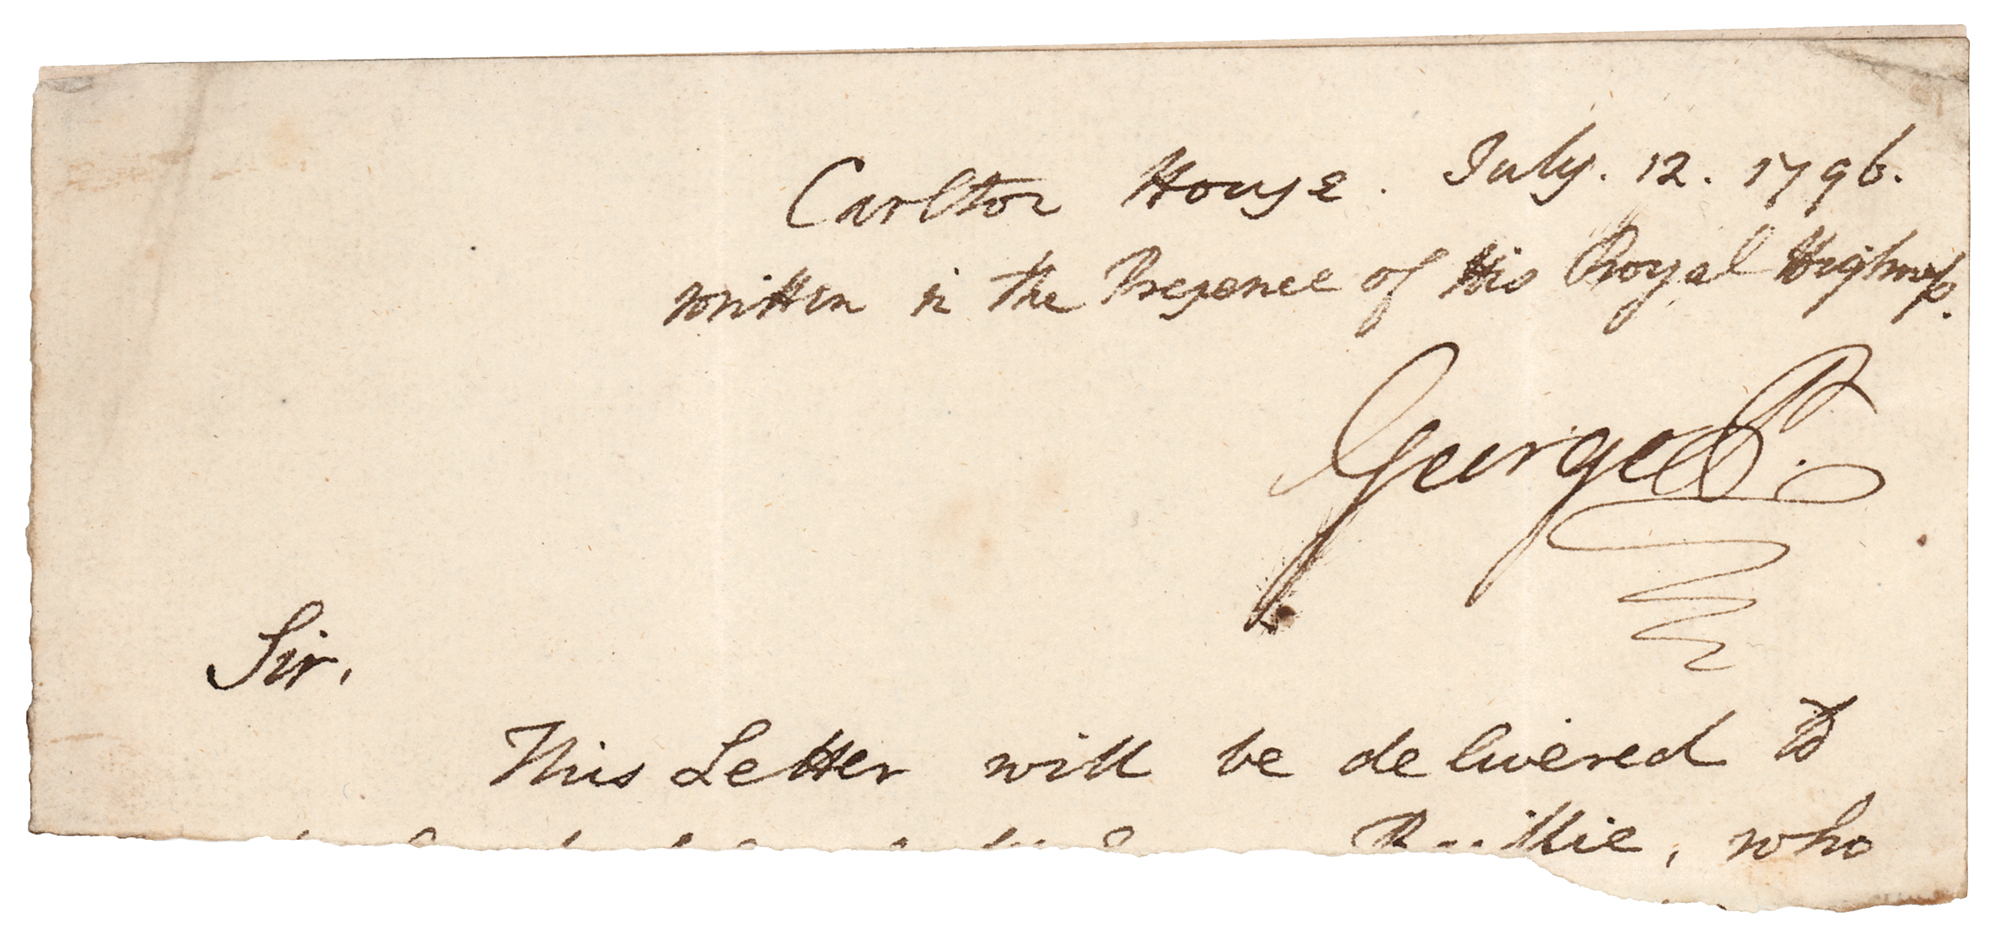 Carlton House. July. 12. 1796.
written in the Presence of His Royal Highness.
George P.
Sir.
This Letter will be delivered to
, who